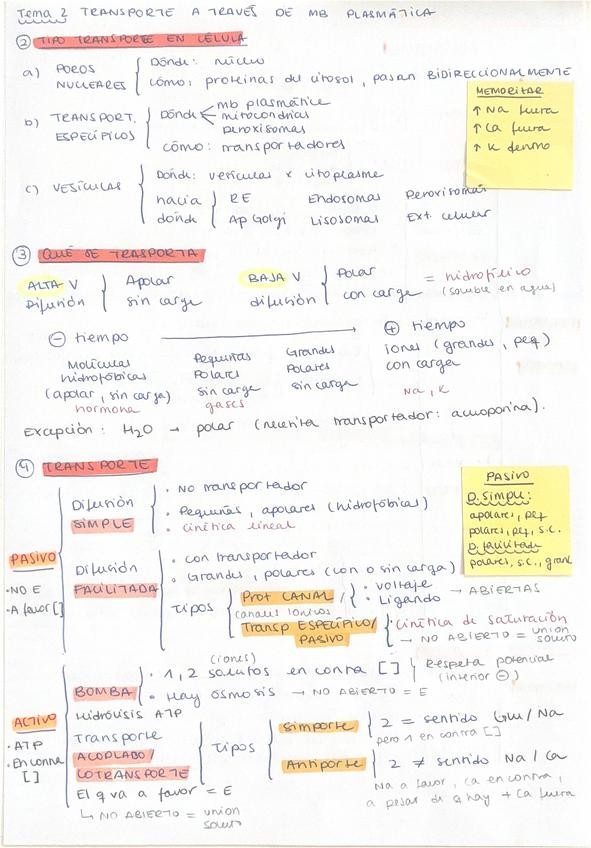 Tema 2 TRANSPORTE A TRAVÉS DE MB PLASMÁTICA
② TIPO TRANSPORTE EN CÉLULA
a) POROS NUCLEARES
Dónde: núcleo
cómo: proteínas del citosol, pasan BIDIRECCIONALMENTE
MEMORITAR
↑ Na fuera
↑ Ca fuera
↑ K dentro
b) TRANSPORT. ESPECÍFICOS
Dónde
mb plasmática
mitocondrias
peroxisomas
cómo: transportadores
c) VESÍCULAS
Dónde: vesículas x citoplasma
hacia dónde
RE Endosomas Peroxisomas
Ap Golgi Lisosomas Ext. celular
③ QUÉ SE TRASPORTA
ALTA V Difusión
Apolar
sin carga
BAJA V difusión
Polar
con carga
= hidrofílico
(soluble en agua)
⊖ tiempo → ⊕ tiempo
Moléculas hidrofóbicas
(apolar, sin carga)
hormona
Pequeñas
Polares
sin carga
gases
Grandes
Polares
sin carga
iones (grandes, peq)
con carga
Na, K
Excepción: H2O → polar (necesita transportador: acuoporina).
④ TRANSPORTE
PASIVO
D. SIMPLE:
apolares, peq
polares, peq, s.c.
D. facilitada
polares, s.c., grand
PASIVO
• NO E
• A favor []
Difusión
SIMPLE
• No transportador
• Pequeñas, apolares (hidrofóbicas)
• cinética lineal
Difusión
FACILITADA
• con transportador
• Grandes, polares (con o sin carga)
Tipos
Prot CANAL /
canales iónicos
• voltaje
• Ligando → ABIERTAS
Transp ESPECÍFICO/
PASIVO
• cinética de saturación
→ NO ABIERTO = union soluto
ACTIVO
• ATP
• En contra []
BOMBA
Hidrólisis ATP
(iones)
• 1, 2 solutos en contra []
• Hay ósmosis → NO ABIERTO = E
Respeta potencial
(interior ⊖)
Transporte
ACOPLADO/
COTRANSPORTE
El q va a favor = E
↳ NO ABIERTO = union soluto
Tipos
Simporte
2 = sentido Glu / Na
pero 1 en contra []
Antiporte
2 ≠ sentido Na / Ca
Na a favor, Ca en contra,
a pesar de q hay + Ca fuera